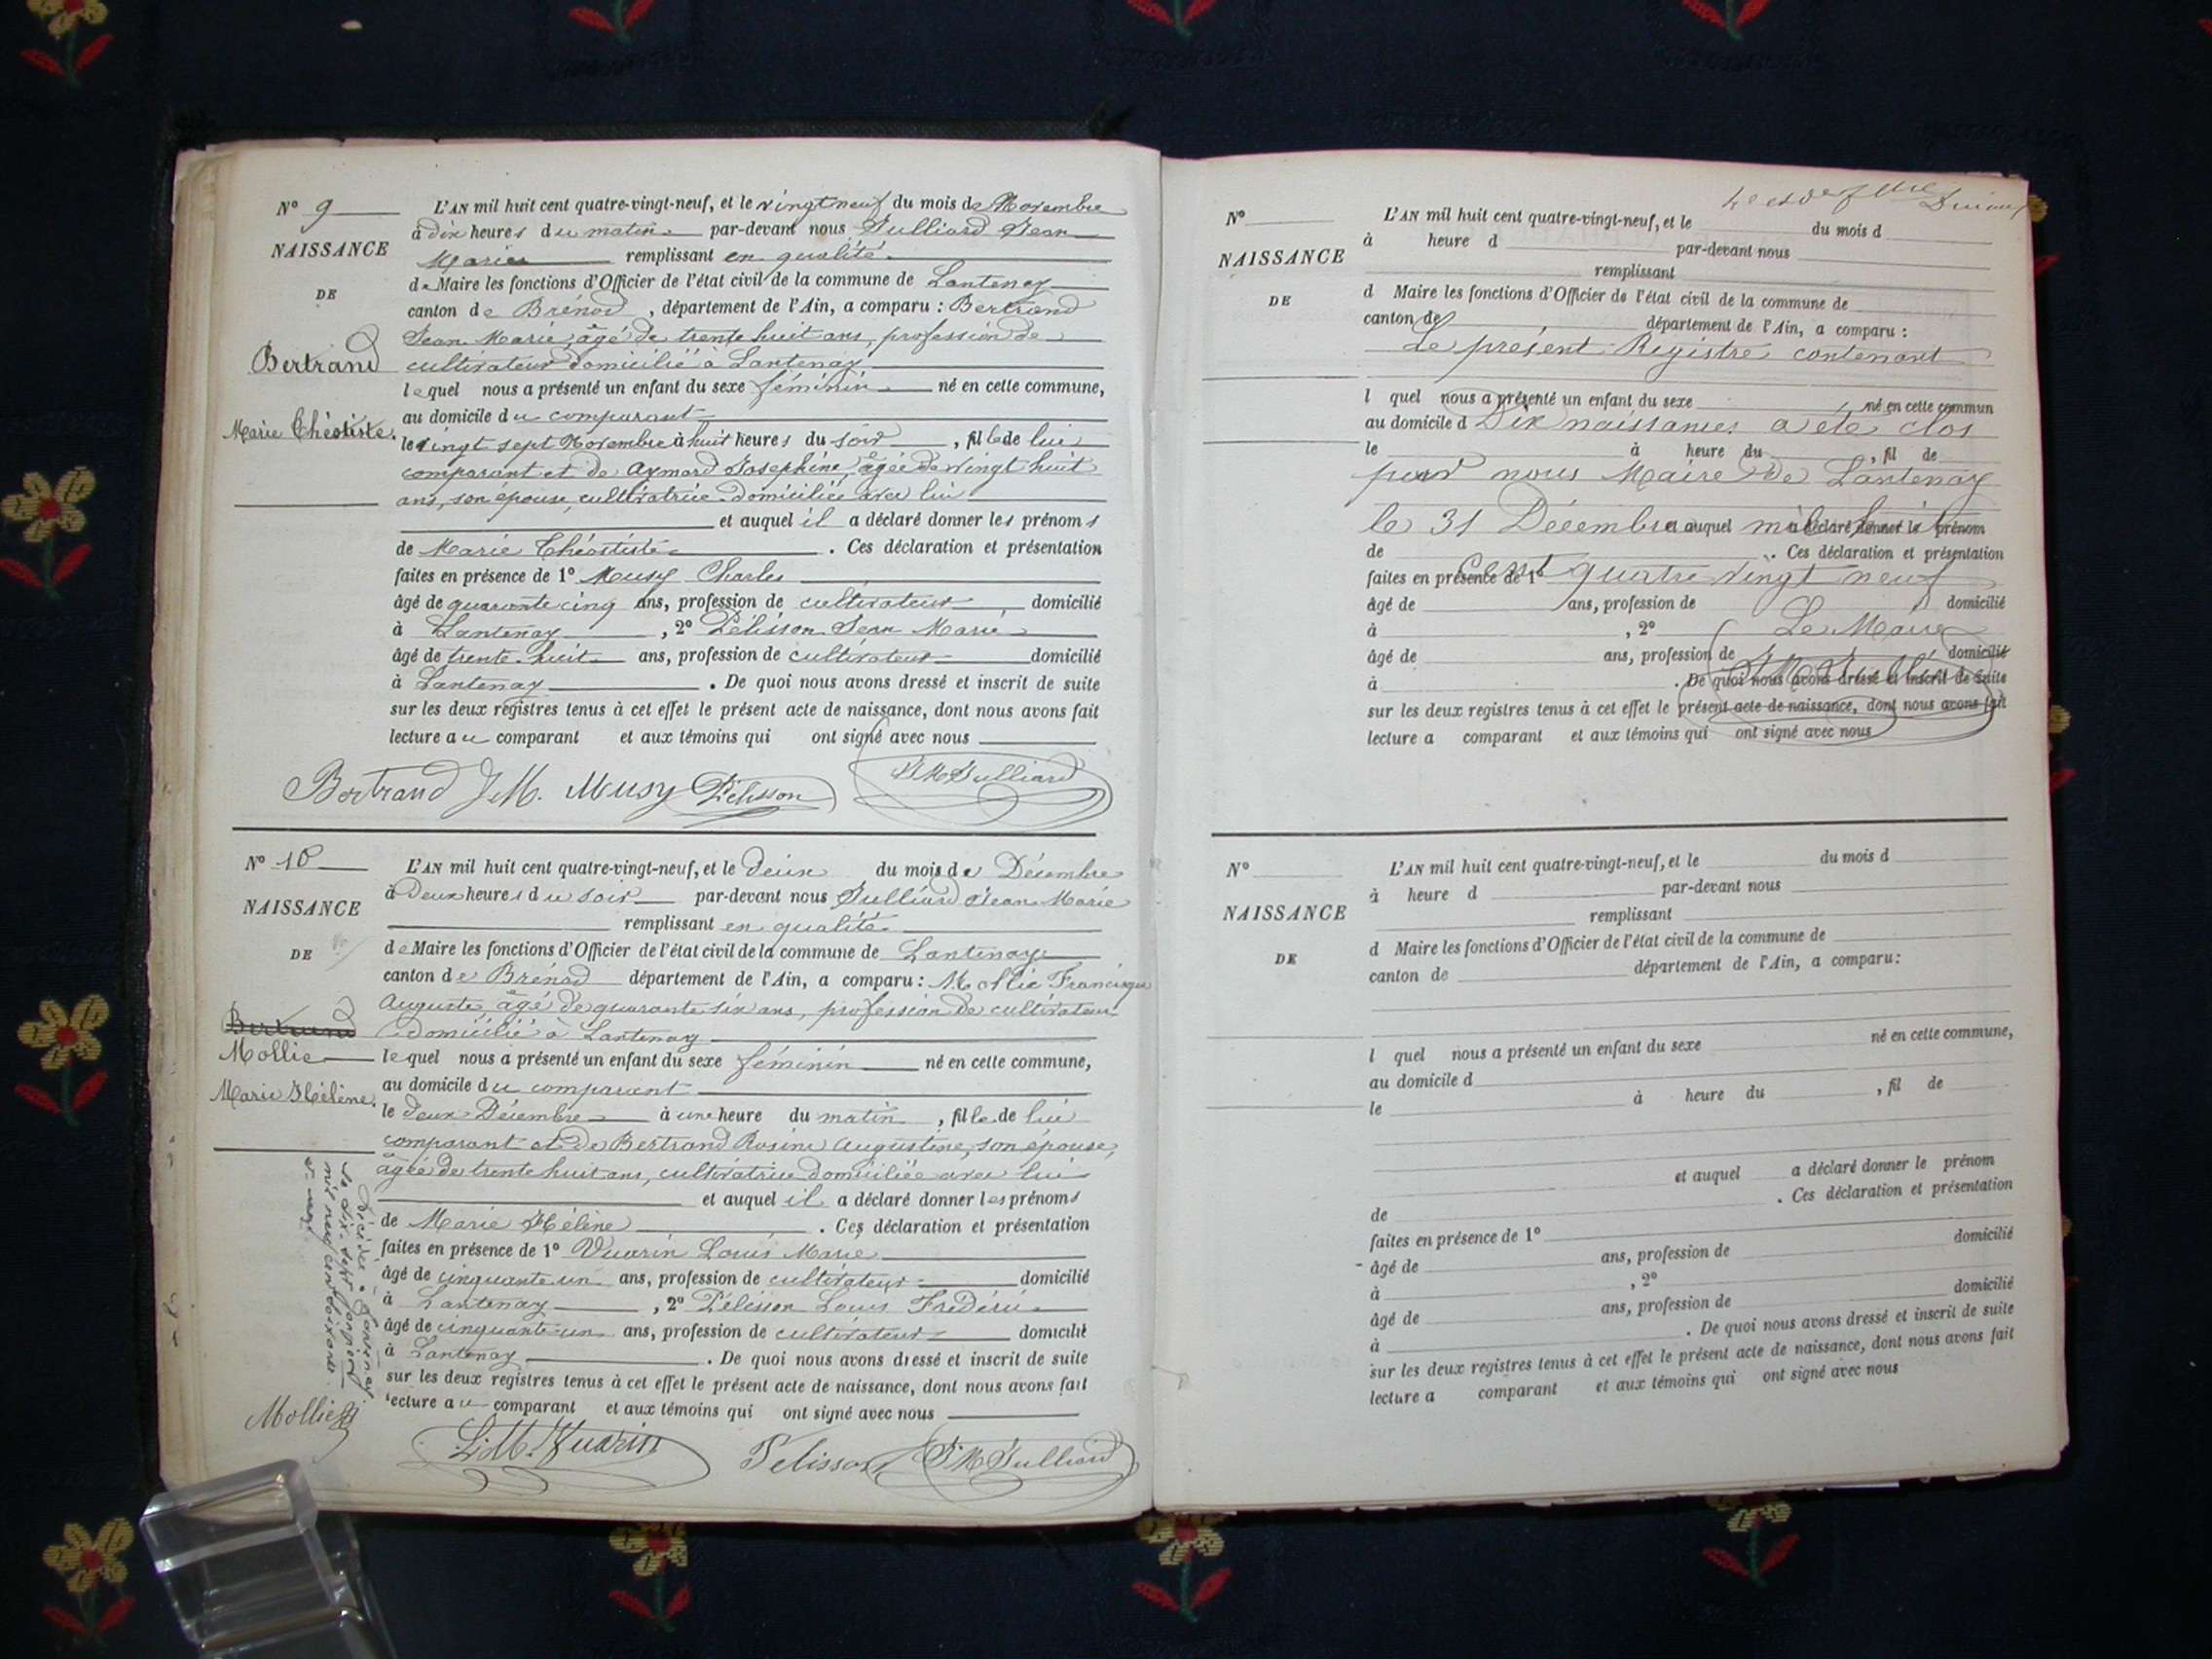 N° 9
NAISSANCE
DE
Bertrand
Marie Théotiste.
L'AN mil huit cent quatre-vingt-neuf, et le vingt neuf du mois de Novembre
à dix heures du matin par-devant nous Julliard Jean
Marie remplissant en qualité
de Maire les fonctions d'Officier de l'état civil de la commune de Lantenay
canton de Brénod, département de l'Ain, a comparu : Bertrand
Jean Marie, âgé de trente huit ans, profession de
cultivateur domicilié à Lantenay
lequel nous a présenté un enfant du sexe féminin né en cette commune,
au domicile du comparant
le vingt sept Novembre à huit heures du soir, fille de lui
comparant et de Aymard Josephine, âgée de vingt huit
ans, son épouse, cultivatrice domiciliée avec lui
et auquel il a déclaré donner les prénoms
de Marie Théotiste. Ces déclaration et présentation
faites en présence de 1° Musy Charles
âgé de quarante cinq ans, profession de cultivateur domicilié
à Lantenay, 2° Pélisson Jean Marie
âgé de trente huit ans, profession de cultivateur domicilié
à Lantenay. De quoi nous avons dressé et inscrit de suite
sur les deux registres tenus à cet effet le présent acte de naissance, dont nous avons fait
lecture au comparant et aux témoins qui ont signé avec nous
Bertrand J M. Musy Pélisson J M Julliard
N° 10
NAISSANCE
DE
Bertrand
Mollie
Marie Hélène.
L'AN mil huit cent quatre-vingt-neuf, et le deux du mois de Décembre
à deux heures du soir par-devant nous Julliard Jean Marie
remplissant en qualité
de Maire les fonctions d'Officier de l'état civil de la commune de Lantenay
canton de Brénod département de l'Ain, a comparu : Mollie Francisque
Auguste, âgé de quarante six ans, profession de cultivateur
domicilié à Lantenay
lequel nous a présenté un enfant du sexe féminin né en cette commune,
au domicile du comparant
le deux Décembre à une heure du matin, fille de lui
comparant et de Bertrand Rosine Augustine, son épouse,
âgée de trente huit ans, cultivatrice domiciliée avec lui
et auquel il a déclaré donner les prénoms
de Marie Hélène. Ces déclaration et présentation
faites en présence de 1° Vuarin Louis Marie
âgé de cinquante un ans, profession de cultivateur domicilié
à Lantenay, 2° Pélisson Louis Frédéric
âgé de cinquante un ans, profession de cultivateur domicilié
à Lantenay. De quoi nous avons dressé et inscrit de suite
sur les deux registres tenus à cet effet le présent acte de naissance, dont nous avons fait
lecture au comparant et aux témoins qui ont signé avec nous
Décédée à Lantenay
le dix-sept janvier
mil neuf cent soixante
Mollie L. M. Vuarin Pelisson J M Julliard
N°
NAISSANCE
DE
L'AN mil huit cent quatre-vingt-neuf, et le du mois d
à heure d par-devant nous
remplissant
d Maire les fonctions d'Officier de l'état civil de la commune de
canton de département de l'Ain, a comparu :
Le présent Registre contenant
l quel nous a présenté un enfant du sexe né en cette commun
au domicile d Dix naissances a été clos
le à heure du, fil de
par nous Maire de Lantenay
le 31 Décembre et auquel mil huit a déclaré donner le prénom
de. Ces déclaration et présentation
faites en présence de 1° Cent quatre vingt neuf
âgé de ans, profession de domicilié
à, 2° Le Maire
âgé de ans, profession de domicilié
J M Julliard
à. De quoi nous avons dressé et inscrit de suite
sur les deux registres tenus à cet effet le présent acte de naissance, dont nous avons fait
lecture a comparant et aux témoins qui ont signé avec nous
N°
NAISSANCE
DE
L'AN mil huit cent quatre-vingt-neuf, et le du mois d
à heure d par-devant nous
remplissant
d Maire les fonctions d'Officier de l'état civil de la commune de
canton de département de l'Ain, a comparu :
l quel nous a présenté un enfant du sexe né en cette commune,
au domicile d
le à heure du, fil de
et auquel a déclaré donner le prénom
de. Ces déclaration et présentation
faites en présence de 1°
âgé de ans, profession de domicilié
à, 2°
âgé de ans, profession de domicilié
à. De quoi nous avons dressé et inscrit de suite
sur les deux registres tenus à cet effet le présent acte de naissance, dont nous avons fait
lecture a comparant et aux témoins qui ont signé avec nous